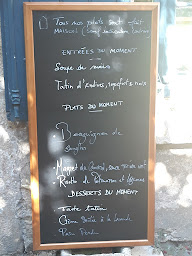 Tous nos plats sont fait
maison (sauf
ENTRÉES DU MOMENT
Soupe de
Tatin d'endives, roquefort & noix
PLATS DU MOMENT
Bourguignon de
sanglier
Magret de Canard, sauce
Risotto de et légumes
DESSERTS DU MOMENT
Tarte tatin
Crème brulée à la lavande
Pain Perdu